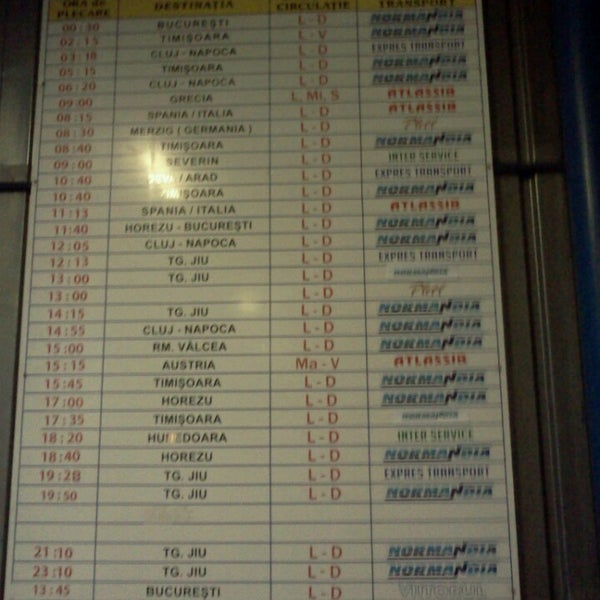 ORA de PLECARE DESTINAȚIA CIRCULAȚIE TRANSPORT
00:30 BUCUREȘTI L - D NORMANDIA
02:15 TIMIȘOARA L - V NORMANDIA
03:10 CLUJ - NAPOCA L - D EXPRES TRANSPORT
05:15 TIMIȘOARA L - D NORMANDIA
06:20 CLUJ - NAPOCA L - D NORMANDIA
09:00 GRECIA L, Mi, S ATLASSIB
08:15 SPANIA / ITALIA L - D ATLASSIB
08:30 MERZIG ( GERMANIA ) L - D
08:40 TIMIȘOARA L - D NORMANDIA
09:00 SEVERIN L - D INTER SERVICE
10:40 / ARAD L - D EXPRES TRANSPORT
10:40 TIMIȘOARA L - D NORMANDIA
11:13 SPANIA / ITALIA L - D ATLASSIB
11:40 HOREZU - BUCUREȘTI L - D NORMANDIA
12:05 CLUJ - NAPOCA L - D NORMANDIA
12:13 TG. JIU L - D EXPRES TRANSPORT
13:00 TG. JIU L - D NORMANDIA
13:00 L - D
14:15 TG. JIU L - D NORMANDIA
14:55 CLUJ - NAPOCA L - D NORMANDIA
15:00 RM. VÂLCEA L - D NORMANDIA
15:15 AUSTRIA Ma - V ATLASSIB
15:45 TIMIȘOARA L - D NORMANDIA
17:00 HOREZU L - D NORMANDIA
17:35 TIMIȘOARA L - D NORMANDIA
18:20 HUNEDOARA L - D INTER SERVICE
18:40 HOREZU L - D NORMANDIA
19:28 TG. JIU L - D EXPRES TRANSPORT
19:50 TG. JIU L - D NORMANDIA
21:10 TG. JIU L - D NORMANDIA
23:10 TG. JIU L - D NORMANDIA
13:45 BUCUREȘTI L - D VIITORUL